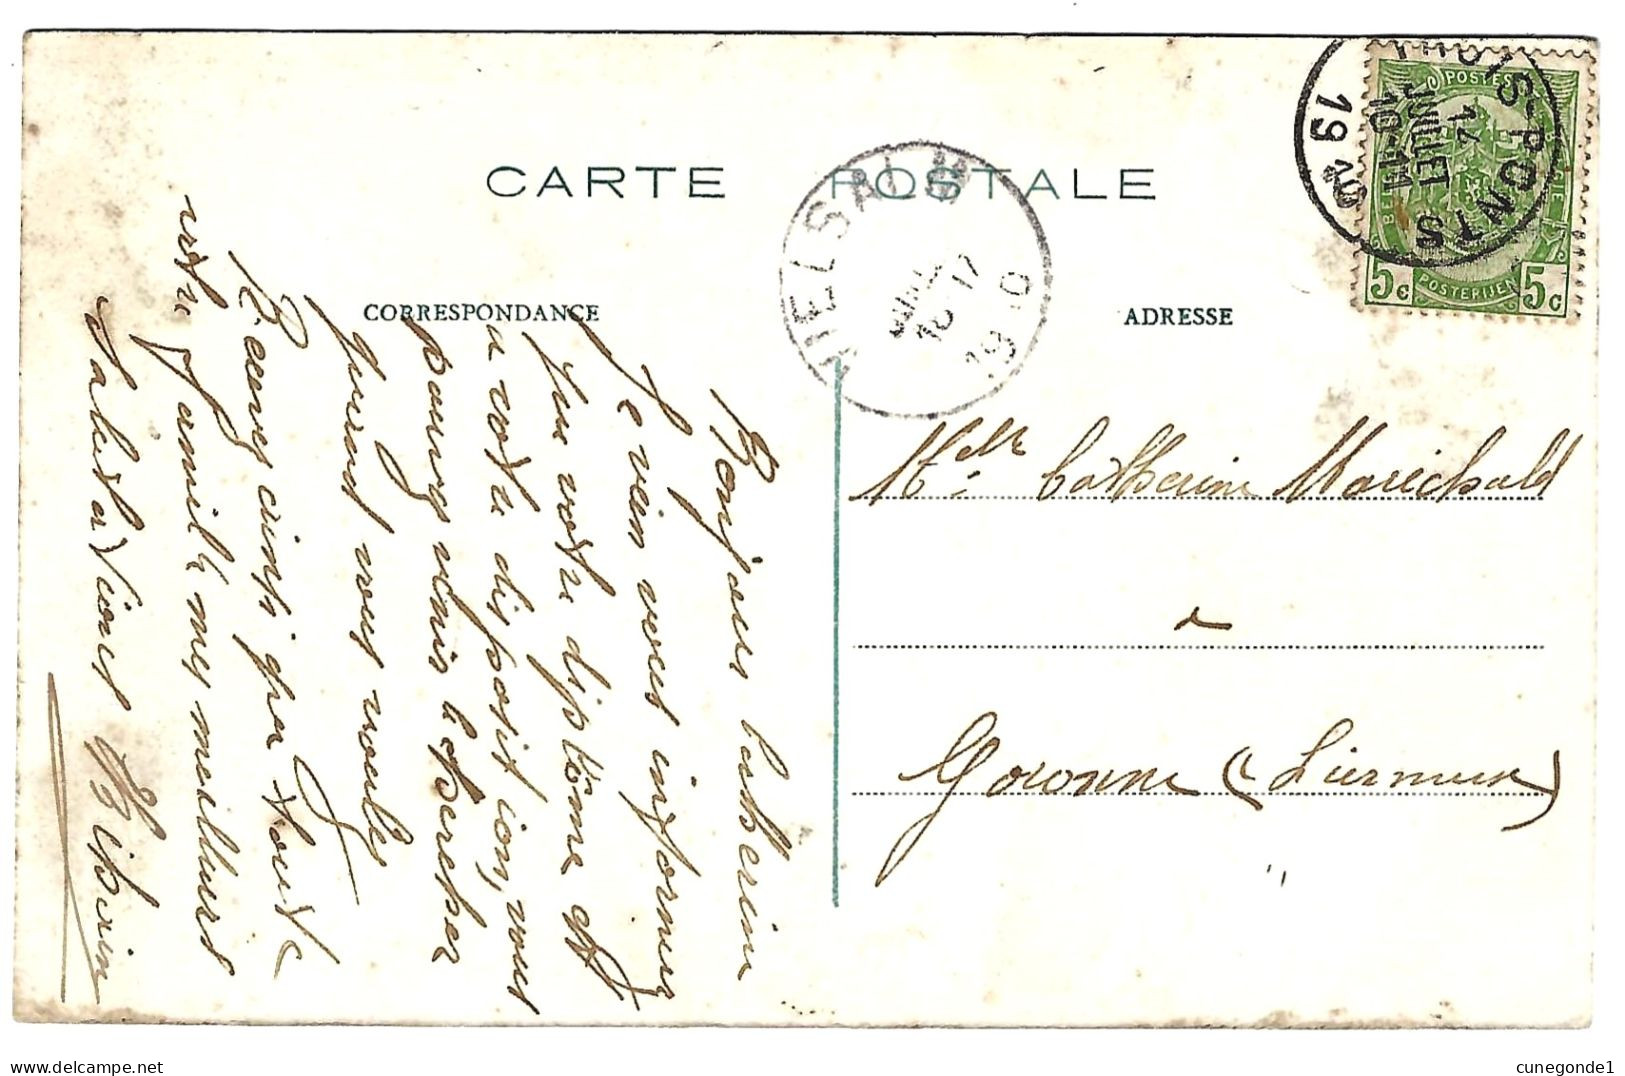 CARTE POSTALE
CORRESPONDANCE
ADRESSE
TROIS-PONTS
14
JUILLET
10-11
19
POSTES
POSTERIJEN
5c 5c
VIELSALM
JUIL
19 10
Bonjour Catherine
Je vien vous informer
que votre diplôme est
a votre disposition, vous
pouvez venir le chercher
quand vous voulez
Recevez ainsi que toute
votre famille mes meilleurs
Salutations
Melle Catherine Maréchald
à
Goronne (Lierneux)
"
cunegonde1